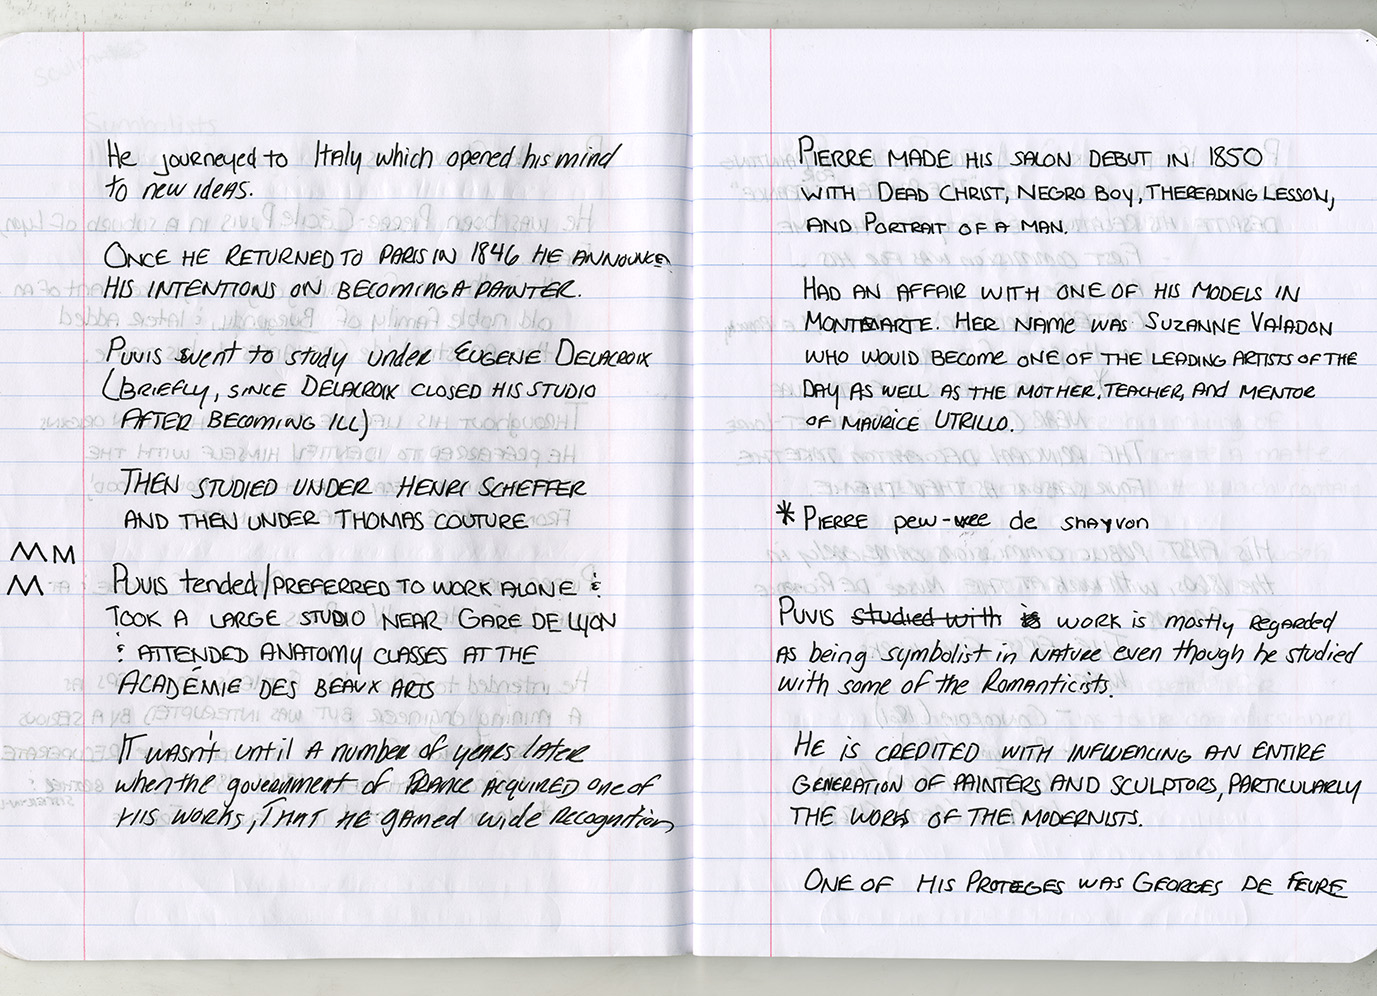 He journeyed to Italy which opened his mind
to new ideas.
ONCE HE RETURNED TO PARIS IN 1846 HE ANNOUNCE
HIS INTENTIONS ON BECOMING A PAINTER.
PUVIS went to study under EUGENE DELACROIX
(BRIEFLY, SINCE DELACROIX CLOSED HIS STUDIO
AFTER BECOMING ILL)
THEN STUDIED UNDER HENRI SCHEFFER
AND THEN UNDER THOMAS COUTURE.
M M
M
PUVIS tended/PREFERRED TO WORK ALONE &
TOOK A LARGE STUDIO NEAR GARE DE LYON
& ATTENDED ANATOMY CLASSES AT THE
ACADÉMIE DES BEAUX ARTS
IT WASN'T until A number of years LATER
when the government of FRANCE ACQUIRED one of
HIS WORKS, THAT HE gained wide Recognition
PIERRE MADE HIS SALON DEBUT IN 1850
WITH DEAD CHRIST, NEGRO BOY, THE READING LESSON,
AND PORTRAIT OF A MAN.
HAD AN AFFAIR WITH ONE OF HIS MODELS IN
MONTMARTE. HER NAME WAS SUZANNE VALADON
WHO WOULD BECOME ONE OF THE LEADING ARTISTS OF THE
DAY AS WELL AS THE MOTHER, TEACHER, AND MENTOR
OF MAURICE UTRILLO.
* PIERRE pew-wee de shayvon
PUVIS studied with WORK is mostly REGARDED
AS being symbolist in NATURE even though he studied
with some of the Romanticists.
HE IS CREDITED WITH INFLUENCING AN ENTIRE
GENERATION OF PAINTERS AND SCULPTORS, PARTICULARLY
THE WORKS OF THE MODERNISTS.
ONE OF HIS PROTEGES WAS GEORGES DE FEURE